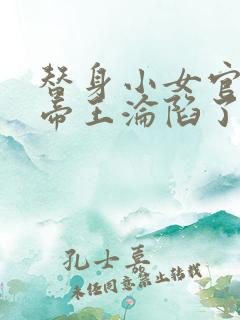 替身小女官
帝王沦陷了
孔士喜
未经同意禁止转载